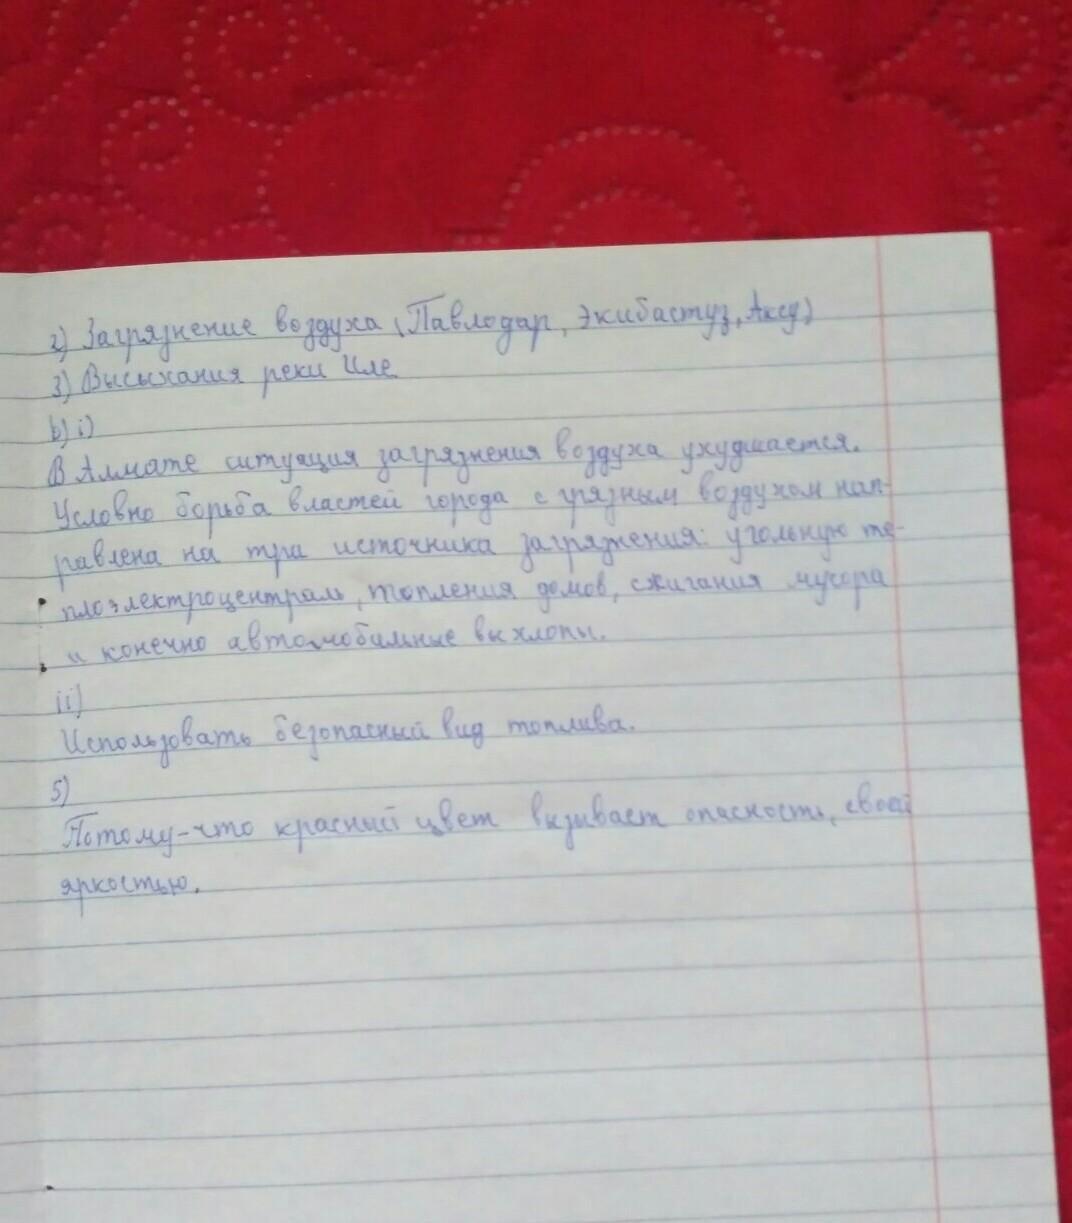 2) Загрязнение воздуха (Павлодар, Экибастуз, Аксу)
3) Высыхания реки Иле
b) i)
В Алмате ситуация загрязнения воздуха ухудшается.
Условно борьба властей города с грязным воздухом нап-
равлена на три источника загрязнения: угольную те-
плоэлектроцентраль, топления домов, сжигания мусора
и конечно автомобильные выхлопы.
ii)
Использовать безопасный вид топлива.
5)
Потому-что красный цвет вызывает опасность, своей
яркостью.